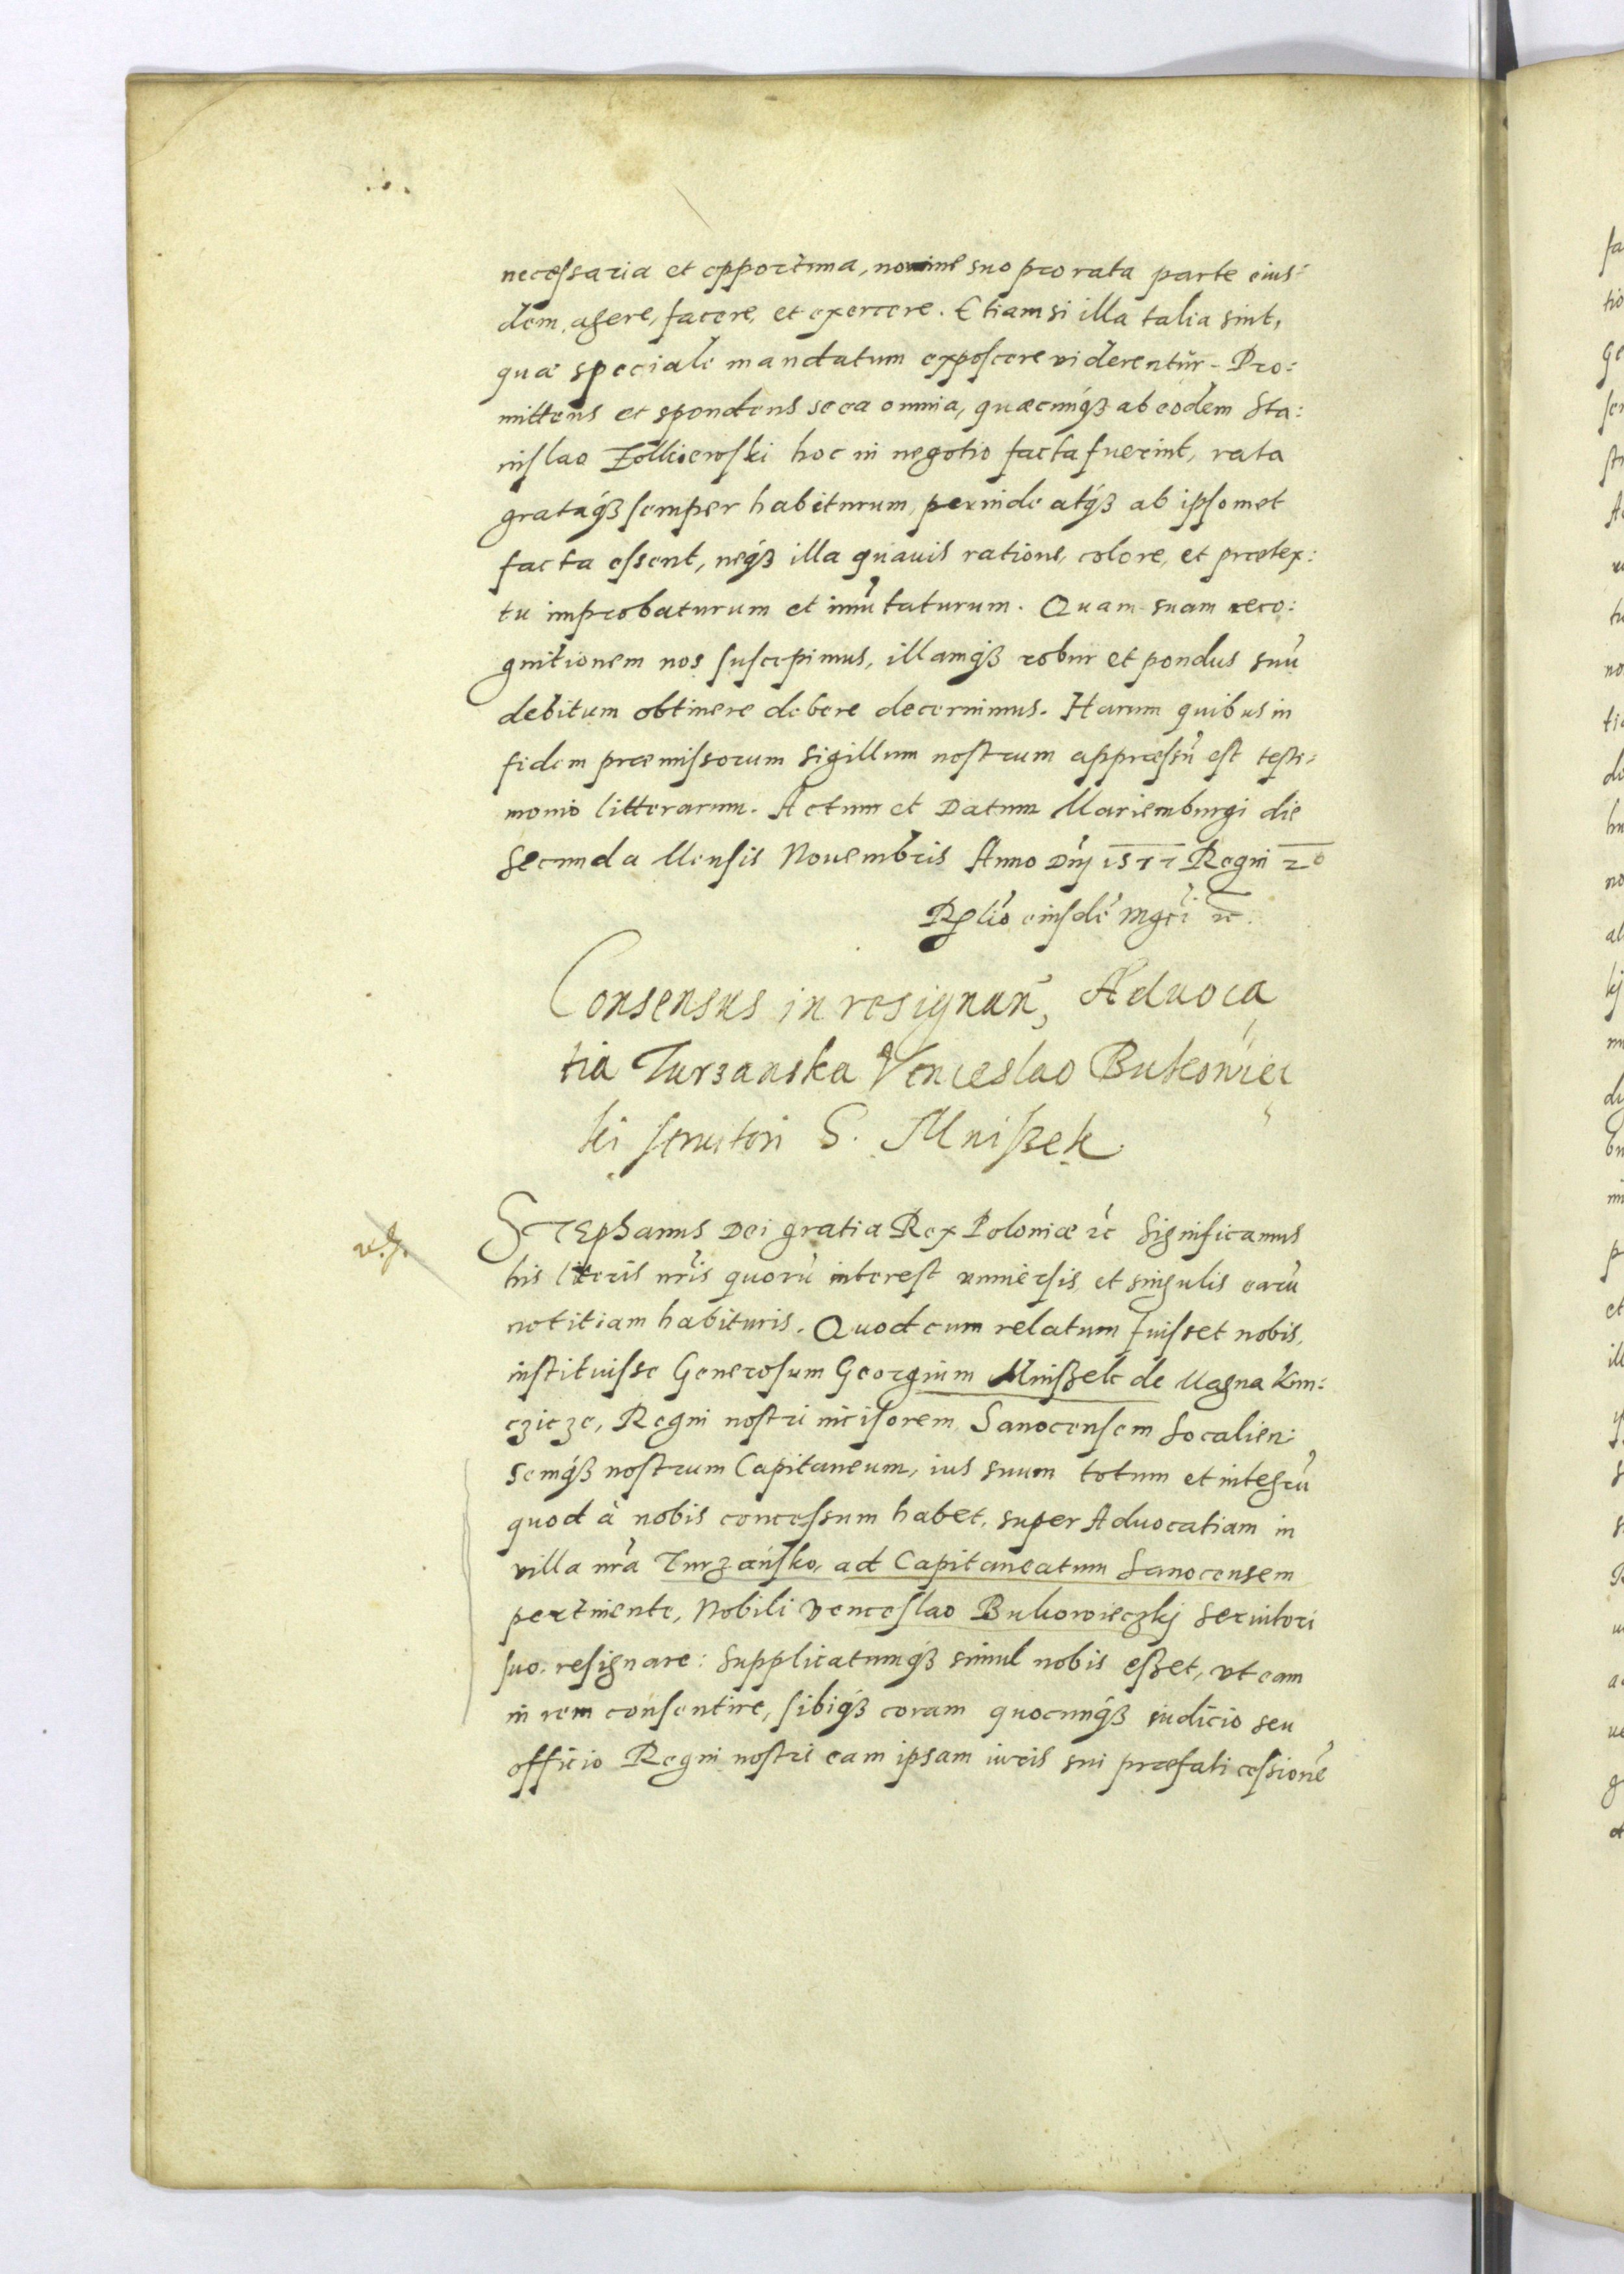 necessaria et opportuna, nomine suo pro rata parte eius:
dem, agere, facere, et exercere. Etiamsi illa talia sint,
quæ speciale mandatum exposcere viderentur. Pro:
mittens et spondens se ea omnia, quæcunqꝫ ab eodem Sta:
nislao Zolkiewski hoc in negotio facta fuerint, rata
grataqꝫ semper habiturum, perinde atqꝫ ab ipsomet
facta essent, neqꝫ illa quavis ratione, colore, et prætex:
tu improbaturum et imutaturum. Quam suam reco:
gnitionem nos suscepimus, illamqꝫ robur et pondus suũ
debitum obtinere debere decernimus. Harum quibus in
fidem præmissorum sigillum nostrum appressũ est testi:
monio litterarum. Actum et Datum Mariemburgi die
Secunda Mensis Novembris Anno Dnj 1577 Regni 2o
Rƥlio eiusdẽ mgci ꝛc.
Consensus in resignan, Advoca
tia Turzanska Venceslao Bukowiec
ki servitori G. Mnißek
STEphanus Dei gratia Rex Poloniæ ꝛc Significamus
his literis nr̃is quorũ interest universis, et singulis earũ
notitiam habituris. Quod cum relatum fuisset nobis,
instituisse Generosum Georgium Mnißek de Magna Kun:
czicze, Regni nostri incisorem, Sanocensem Socalien:
semqꝫ nostrum Capitaneum, ius suum totum et integrũ
quod à nobis concessum habet, super Advocatiam in
villa nr̃a Turzańsko, ad Capitaneatum Sanocensem
pertinente, Nobili Venceslao Bukowieczkj servitori
suo, resignare: Supplicatumqꝫ simul nobis eßet, vt eam
in rem consentire, sibiqꝫ coram quocunqꝫ iudicio seu
officio Regni nostri eam ipsam iuris sui præfati cessionẽ